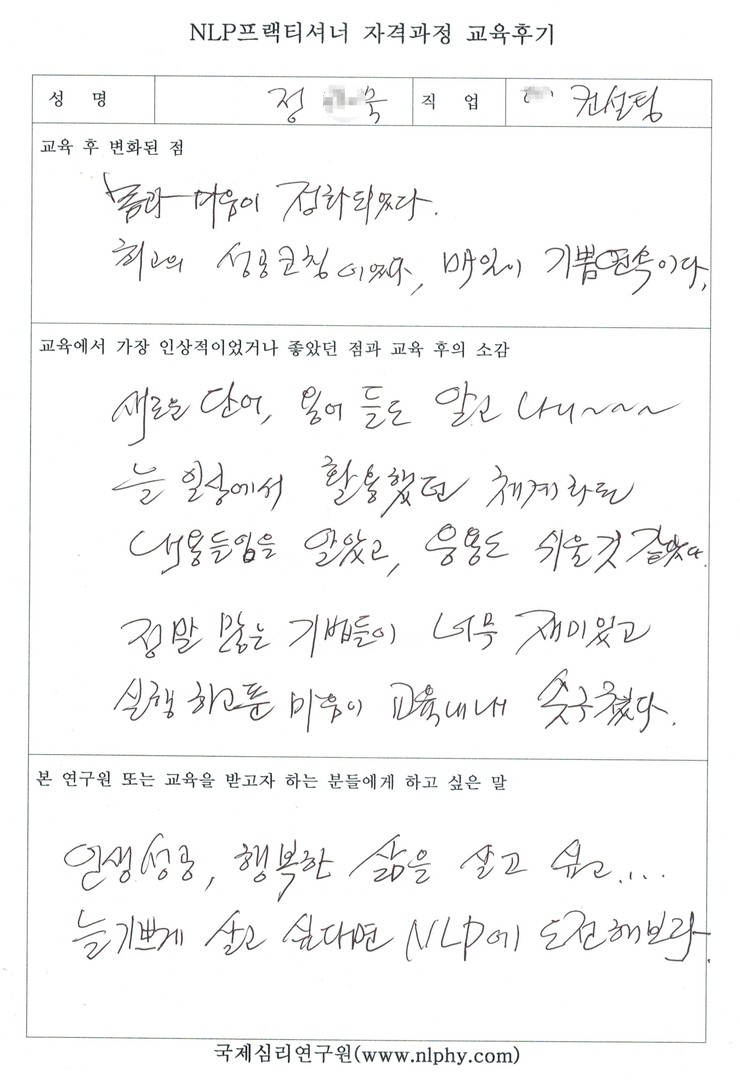 NLP프랙티셔너 자격과정 교육후기
성 명 정 욱 직 업 컨설팅
교육 후 변화된 점
몸과 마음이 정화되었다.
최고의 성공코칭이었다, 매일이 기쁨연속이다.
교육에서 가장 인상적이었거나 좋았던 점과 교육 후의 소감
새로운 단어, 용어 들도 알고 나니~~~
늘 일상에서 활용했던 체계라든
내용들임을 알았고, 응용도 쉬울것 같았다.
정말 많은 기법들이 너무 재미있고
실행 하고픈 마음이 교육내내 솟구쳤다.
본 연구원 또는 교육을 받고자 하는 분들에게 하고 싶은 말
인생성공, 행복한 삶을 살고 싶고....
늘 기쁘게 살고 싶다면 NLP에 도전해보라.
국제심리연구원(www.nlphy.com)